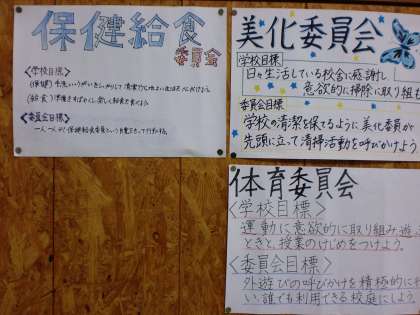 保健給食
委員会
<学校目標>
<委員会目標>
美化委員会
学校目標
日々生活している校舎に感謝し
意欲的に掃除に取り組も
委員会目標
学校の清潔を保てるように美化委員が
先頭に立って清掃活動を呼びかけよう
体育委員会
<学校目標>
運動に意欲的に取り組み遊
ときと、授業のけじめをつけよう。
<委員会目標>
外遊びの呼びかけを積極的に
い、誰でも利用できる校庭にしよう